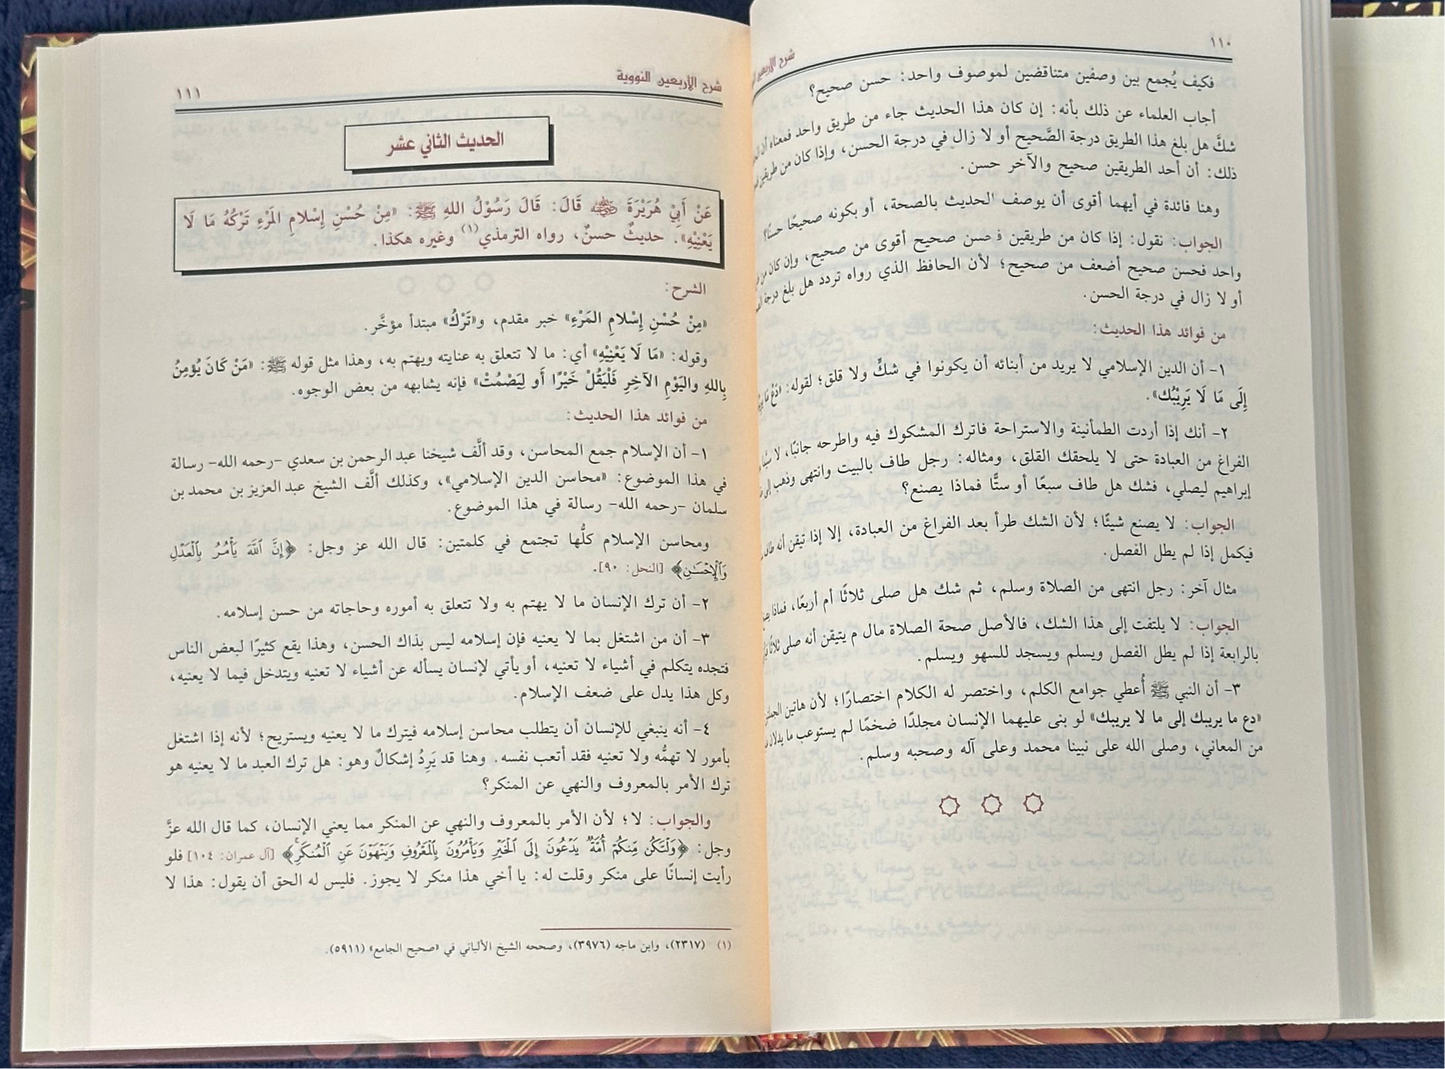 ١١٠
شرح الأربعين
فكيف يُجمع بين وصفين متناقضين لموصوف واحد: حسن صحيح؟
أجاب العلماء عن ذلك بأنه: إن كان هذا الحديث جاء من طريق واحد فمعناه أن
شكَّ هل بلغ هذا الطريق درجة الصَّحيح أو لا زال في درجة الحسن، وإذا كان من طريقين
ذلك: أن أحد الطريقين صحيح والآخر حسن.
وهنا فائدة في أيهما أقوى أن يوصف الحديث بالصحة، أو بكونه صحيحًا حسنًا؟
الجواب: نقول: إذا كان من طريقين فحسن صحيح أقوى من صحيح، وإن كان من
واحد فحسن صحيح أضعف من صحيح؛ لأن الحافظ الذي رواه تردد هل بلغ درجة
أو لا زال في درجة الحسن.
من فوائد هذا الحديث:
١- أن الدين الإسلامي لا يريد من أبنائه أن يكونوا في شكٍّ ولا قلق؛ لقوله: «دَعْ مَا
إِلَى مَا لَا يَرِيْبُك».
٢- أنك إذا أردت الطمأنينة والاستراحة فاترك المشكوك فيه واطرحه جانبًا، لا
الفراغ من العبادة حتى لا يلحقك القلق، ومثاله: رجل طاف بالبيت وانتهى وذهب إلى
إبراهيم ليصلي، فشك هل طاف سبعًا أو ستًّا فماذا يصنع؟
الجواب: لا يصنع شيئًا؛ لأن الشك طرأ بعد الفراغ من العبادة، إلا إذا تيقن أنه
فيكمل إذا لم يطل الفصل.
مثال آخر: رجل انتهى من الصلاة وسلم، ثم شك هل صلى ثلاثًا أم أربعًا، فماذا
الجواب: لا يلتفت إلى هذا الشك، فالأصل صحة الصلاة مال م يتيقن أنه صلى ثلاثًا
بالرابعة إذا لم يطل الفصل ويسلم ويسجد للسهو ويسلم.
٣- أن النبي ﷺ أُعطي جوامع الكلم، واختصر له الكلام اختصارًا؛ لأن هاتين
«دع ما يريبك إلى ما لا يريبك» لو بنى عليهما الإنسان مجلدًا ضخمًا لم يستوعب ما يدلان
من المعاني، وصلى الله على نبينا محمد وعلى آله وصحبه وسلم.
شرح الأربعين النووية
١١١
الحديث الثاني عشر
عَنْ أَبِيْ هُرَيْرَةَ رضي الله عنه قَالَ: قَالَ رَسُوْلُ اللهِ ﷺ: «مِنْ حُسْنِ إِسْلامِ المَرْءِ تَرْكُهُ مَا لَا
يَعْنِيْهِ». حديثٌ حسنٌ، رواه الترمذي(١) وغيره هكذا.
الشرح:
«مِنْ حُسْنِ إِسْلَامِ المَرْءِ» خبر مقدم، و«تَرْكُ» مبتدأ مؤخَّر.
وقوله: «مَا لَا يَعْنِيْهِ» أي: ما لا تتعلق به عنايته ويهتم به، وهذا مثل قوله ﷺ: «مَنْ كَانَ يُؤمِنُ
بِاللهِ واليَوْمِ الآخِرِ فَلْيَقُلْ خَيْرًا أَو لِيَصْمُتْ» فإنه يشابهه من بعض الوجوه.
من فوائد هذا الحديث:
١- أن الإسلام جمع المحاسن، وقد ألَّف شيخنا عبد الرحمن بن سعدي -رحمه الله- رسالة
في هذا الموضوع: «محاسن الدين الإسلامي»، وكذلك ألَّف الشيخ عبد العزيز بن محمد بن
سلمان -رحمه الله- رسالة في هذا الموضوع.
ومحاسن الإسلام كلُّها تجتمع في كلمتين: قال الله عز وجل: ﴿إِنَّ ٱللَّهَ يَأْمُرُ بِٱلْعَدْلِ
وَٱلْإِحْسَٰنِ﴾ [النحل: ٩٠].
٢- أن ترك الإنسان ما لا يهتم به ولا تتعلق به أموره وحاجاته من حسن إسلامه.
٣- أن من اشتغل بما لا يعنيه فإن إسلامه ليس بذاك الحسن، وهذا يقع كثيرًا لبعض الناس
فتجده يتكلم في أشياء لا تعنيه، أو يأتي لإنسان يسأله عن أشياء لا تعنيه ويتدخل فيما لا يعنيه،
وكل هذا يدل على ضعف الإسلام.
٤- أنه ينبغي للإنسان أن يتطلب محاسن إسلامه فيترك ما لا يعنيه ويستريح؛ لأنه إذا اشتغل
بأمور لا تهمُّه ولا تعنيه فقد أتعب نفسه. وهنا قد يَرِدُ إشكالٌ وهو: هل ترك العبد ما لا يعنيه هو
ترك الأمر بالمعروف والنهي عن المنكر؟
والجواب: لا؛ لأن الأمر بالمعروف والنهي عن المنكر مما يعني الإنسان، كما قال الله عزَّ
وجل: ﴿وَلْتَكُن مِّنكُمْ أُمَّةٌ يَدْعُونَ إِلَى ٱلْخَيْرِ وَيَأْمُرُونَ بِٱلْمَعْرُوفِ وَيَنْهَوْنَ عَنِ ٱلْمُنكَرِ﴾ [آل عمران: ١٠٤] فلو
رأيت إنسانًا على منكر وقلت له: يا أخي هذا منكر لا يجوز. فليس له الحق أن يقول: هذا لا
(١) (٢٣١٧)، وابن ماجه (٣٩٧٦)، وصححه الشيخ الألباني في «صحيح الجامع» (٥٩١١).